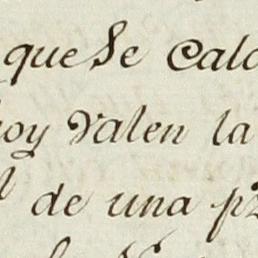 que Se Calc
hoy Valen la
de una pz